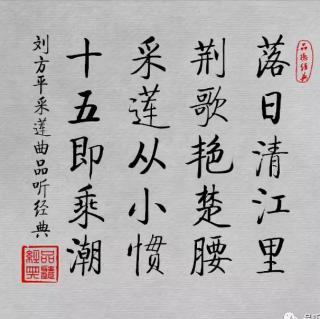 品听经典
落日清江里
荆歌艳楚腰
采莲从小惯
十五即乘潮
刘方平采莲曲品听经典
品听
经典